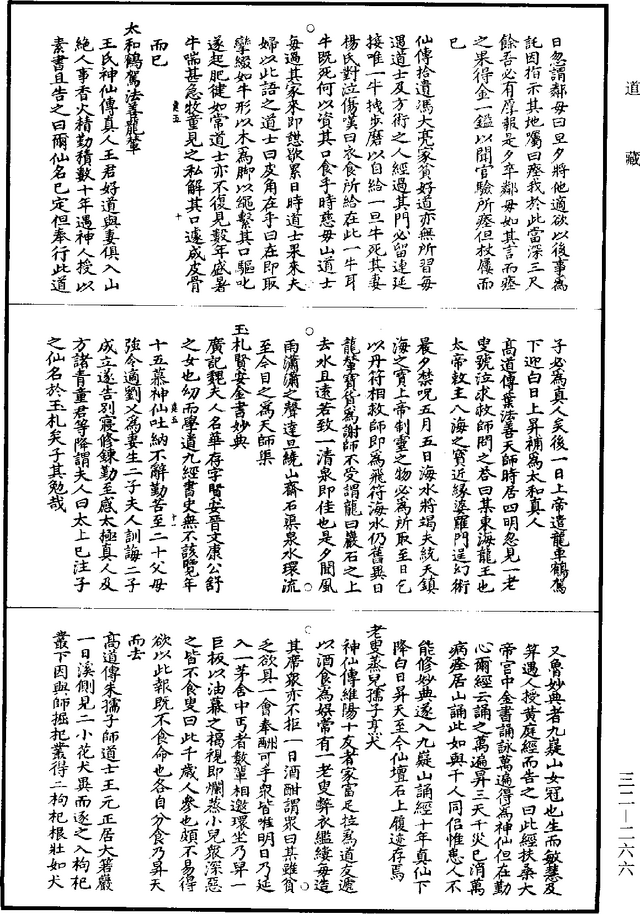 道藏
日忽謂鄰母曰旦夕將他適欲以後事為
託因指示其地囑曰瘞我於此當深三尺
餘吾必有厚報是夕卒鄰母如其言而瘞
之果得金一鎰以聞官驗所瘞但杖屨而
已
仙傳拾遺馮大亮家貧好道亦無所習每
遇道士及方術之人經過其門必留連延
接唯一牛拽步磨以自給一旦牛死其妻
楊氏對泣傷嘆曰衣食所給在此一牛耳
牛既死何以資其口食乎時慈母山道士
每過其家來即憩歇累日時道士果來夫
婦以此語之道士曰皮角在乎曰在即取
攣綴如牛形以木為脚以繩繫其口驅叱
遂起肥健如常道士亦不復見數年盛暑
牛喘甚急牧童見之私解其口遽成皮骨
而已
太和鶴駕法善龍輦
王氏神仙傳真人王君好道與妻俱入山
絕人事香火精勤積數十年遇神人授以
素書且告之曰爾仙名已定但奉行此道
子必為真人矣後一日上帝遣龍車鶴駕
下迎白日上昇補為太和真人
高道傳葉法善天師時居四明忽見一老
叟號泣求救師問之荅曰某東海龍王也
太帝敕主八海之寶近緣婆羅門逞幻術
晨夕禁呪五月五日海水將竭夫統天鎮
海之寶上帝制靈之物必為所取至日乞
以丹符相救師即為飛符海水仍舊異日
龍輦寶貨為謝師不受謂龍曰巖石之上
去水且遠若致一清泉即佳也是夕聞風
雨瀟瀟之聲達旦繞山齋石渠泉水環流
至今目之為天師渠
玉札賢安金書妙典
廣記魏夫人名華存字賢安晉文康公舒
之女也幼而學道九經書史無不該覽年
十五慕神仙吐納不解勤苦至二十父母
強令適劉乂為妻生二子夫人訓誨二子
成立遂告別寢修鍊勤至感太極真人及
方諸青童君等降謂夫人曰太上已注子
之仙名於玉札矣子其勉哉
又魯妙典者九嶷山女冠也生而敏慧及
笄遇人授黃庭經而告之曰此經扶桑大
帝官中金書誦詠萬遍得為神仙但在勤
心爾經云誦之萬遍昇三天千災已消萬
病痊居山誦此如與千人同侶惟患人不
能修妙典遂入九嶷山誦經十年真仙下
降白日昇天至今仙壇石上履迹存焉
老叟蒸兒孺子烹犬
神仙傳維陽十友者家富足拉為道友遞
以酒食為娛常有一老叟弊衣繿縷每造
其席衆亦不拒一日酒酣謂衆曰某雖貧
乏欲具一會奉酬可乎衆皆唯明日乃延
入一茅舍中丐者數輩相邀環坐乃舁一
巨板以油幕之揭視即爛蒸小兒衆深惡
之皆不食叟曰此千歲人參也頗不易得
欲以此報既不食命也各自分食乃昇天
而去
高道傳朱孺子師道士王元正居大箬巖
一日溪側見二小花犬異而逐之入枸杞
叢下因與師掘杞叢得二枸杞根壯如犬
三二—二六六